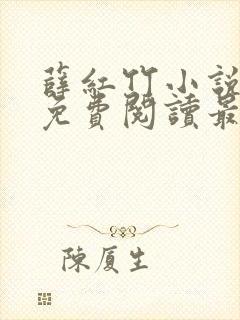 薛紅竹小說
免費閱讀最
陳厦生